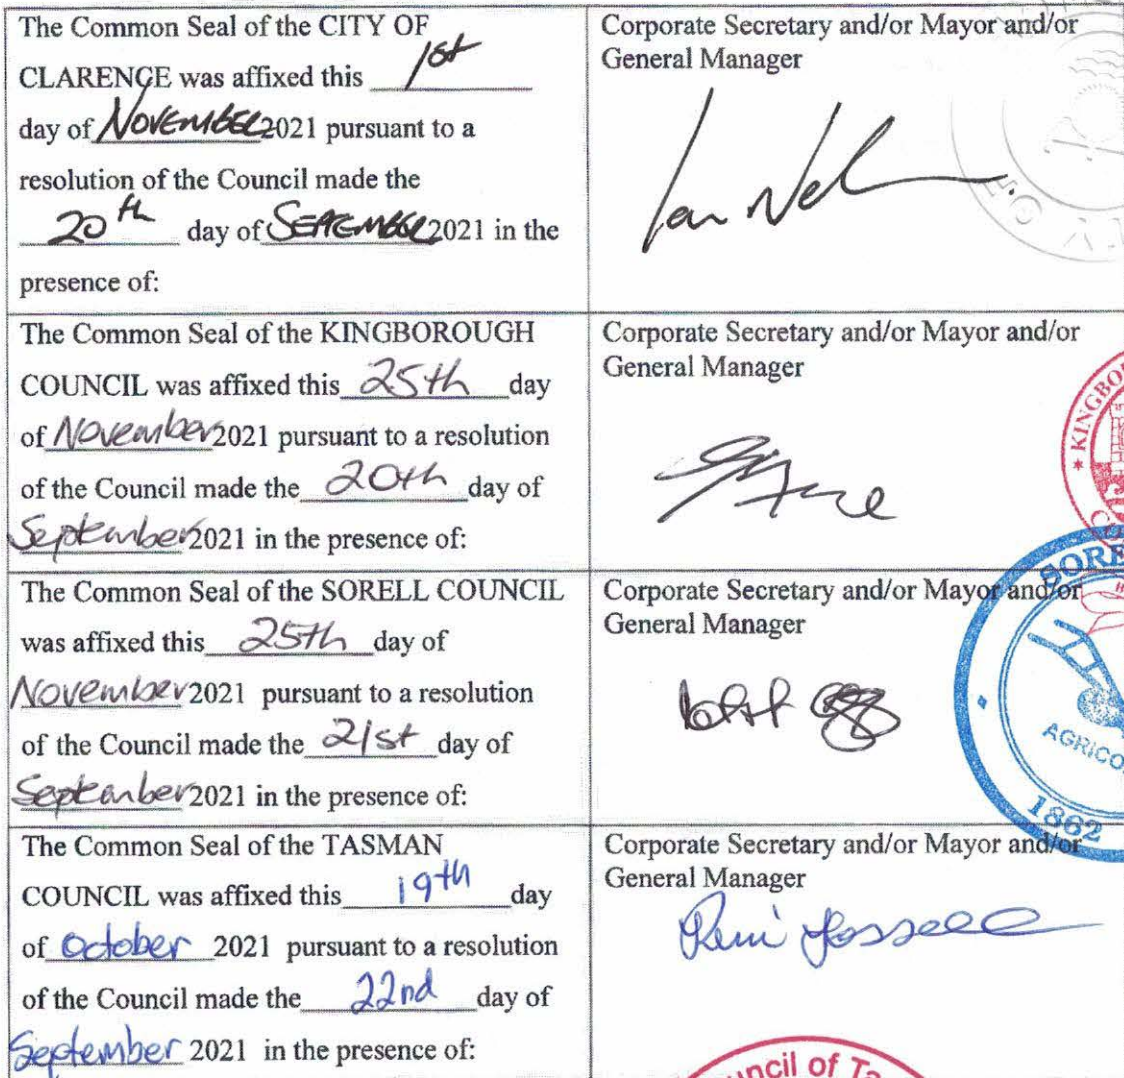 The Common Seal of the CITY OF
CLARENCE was affixed this 1st
day of NOVEMBER 2021 pursuant to a
resolution of the Council made the
20th day of SEPTEMBER 2021 in the
presence of:
Corporate Secretary and/or Mayor and/or
General Manager
The Common Seal of the KINGBOROUGH
COUNCIL was affixed this 25th day
of November 2021 pursuant to a resolution
of the Council made the 20th day of
September 2021 in the presence of:
Corporate Secretary and/or Mayor and/or
General Manager
The Common Seal of the SORELL COUNCIL
was affixed this 25th day of
November 2021 pursuant to a resolution
of the Council made the 21st day of
September 2021 in the presence of:
Corporate Secretary and/or Mayor and/or
General Manager
SORE
AGRICO
1862
The Common Seal of the TASMAN
COUNCIL was affixed this 19th day
of October 2021 pursuant to a resolution
of the Council made the 22nd day of
September 2021 in the presence of:
Corporate Secretary and/or Mayor and/or
General Manager
uncil of Ta